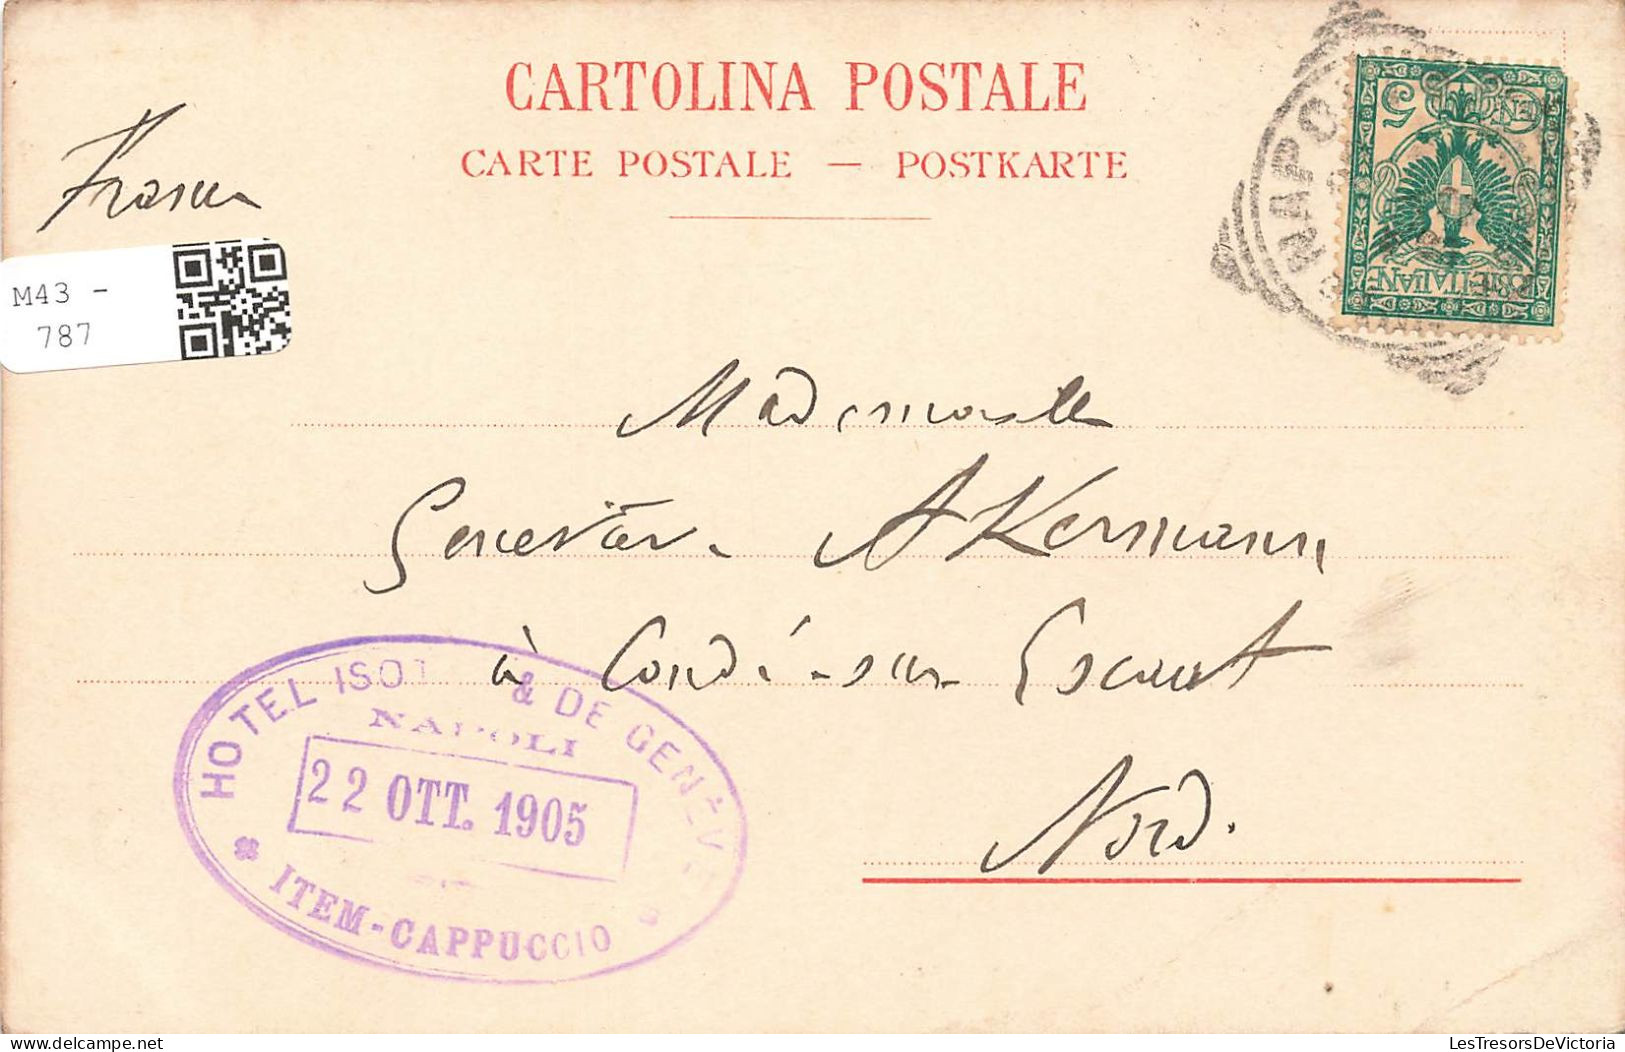 CARTOLINA POSTALE
CARTE POSTALE — POSTKARTE
France
M43 -
787
NAPO
CEN 5
POSTE ITALIANE
Mademoiselle
Geneviève AKermann
à Condé-sur-Escaut
Nord.
HOTEL ISOT & DE GENÈVE
NAPOLI
22 OTT. 1905
ITEM-CAPPUCCIO
delcampe.net
LesTresorsDeVictoria